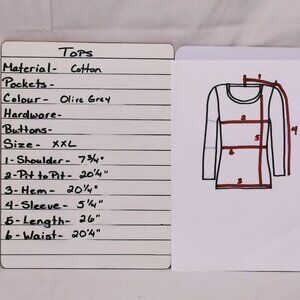 Tops
Material- Cotton
Pockets-
Colour- Olive Grey
Hardware-
Buttons-
Size- XXL
1-Shoulder- 7¾"
2-Pit to Pit- 20¼"
3-Hem- 20¼"
4-Sleeve- 5¼"
5-Length- 26"
6-Waist- 20¼"
1
2
5
4
6
3